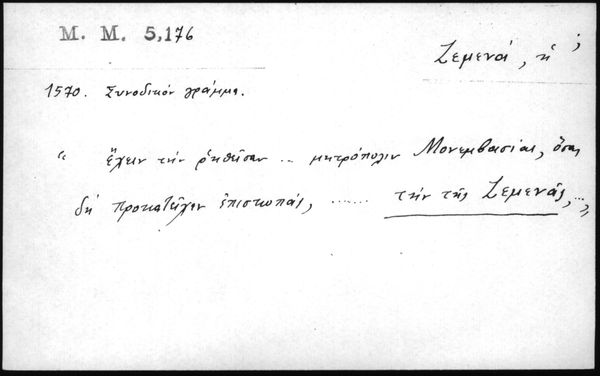 M. M. 5,176
Ζεμενά, ἡ ;
1570. Συνοδικόν γράμμα.
“ ἔχειν τήν ῥηθεῖσαν ... μητρόπολιν Μονεμβασίας, ὅσας
δή προκατεῖχεν ἐπισκοπάς, ...... τήν τῆς Ζεμενᾶς, ... ”